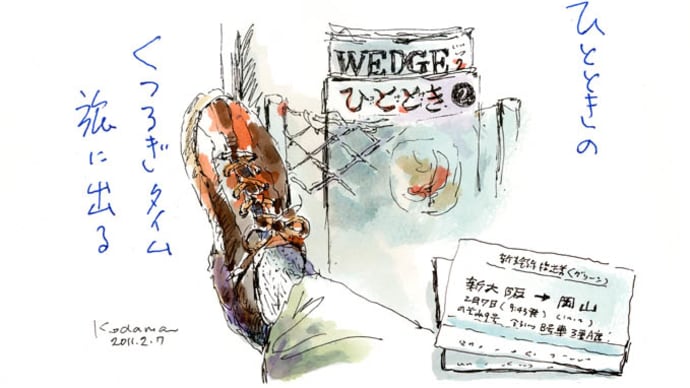 ひとときの
くつろぎタイム
旅に出る
WEDGE 2
ひととき 2
新幹線指定券(グリーン)
新大阪→岡山
2月7日(9:43発)
8号車3番A席
Kodama
2011.2.7